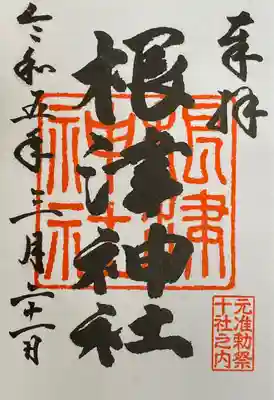 奉拝
根津神社
根津神社
令和五年三月二十一日
元准勅祭
十社之内